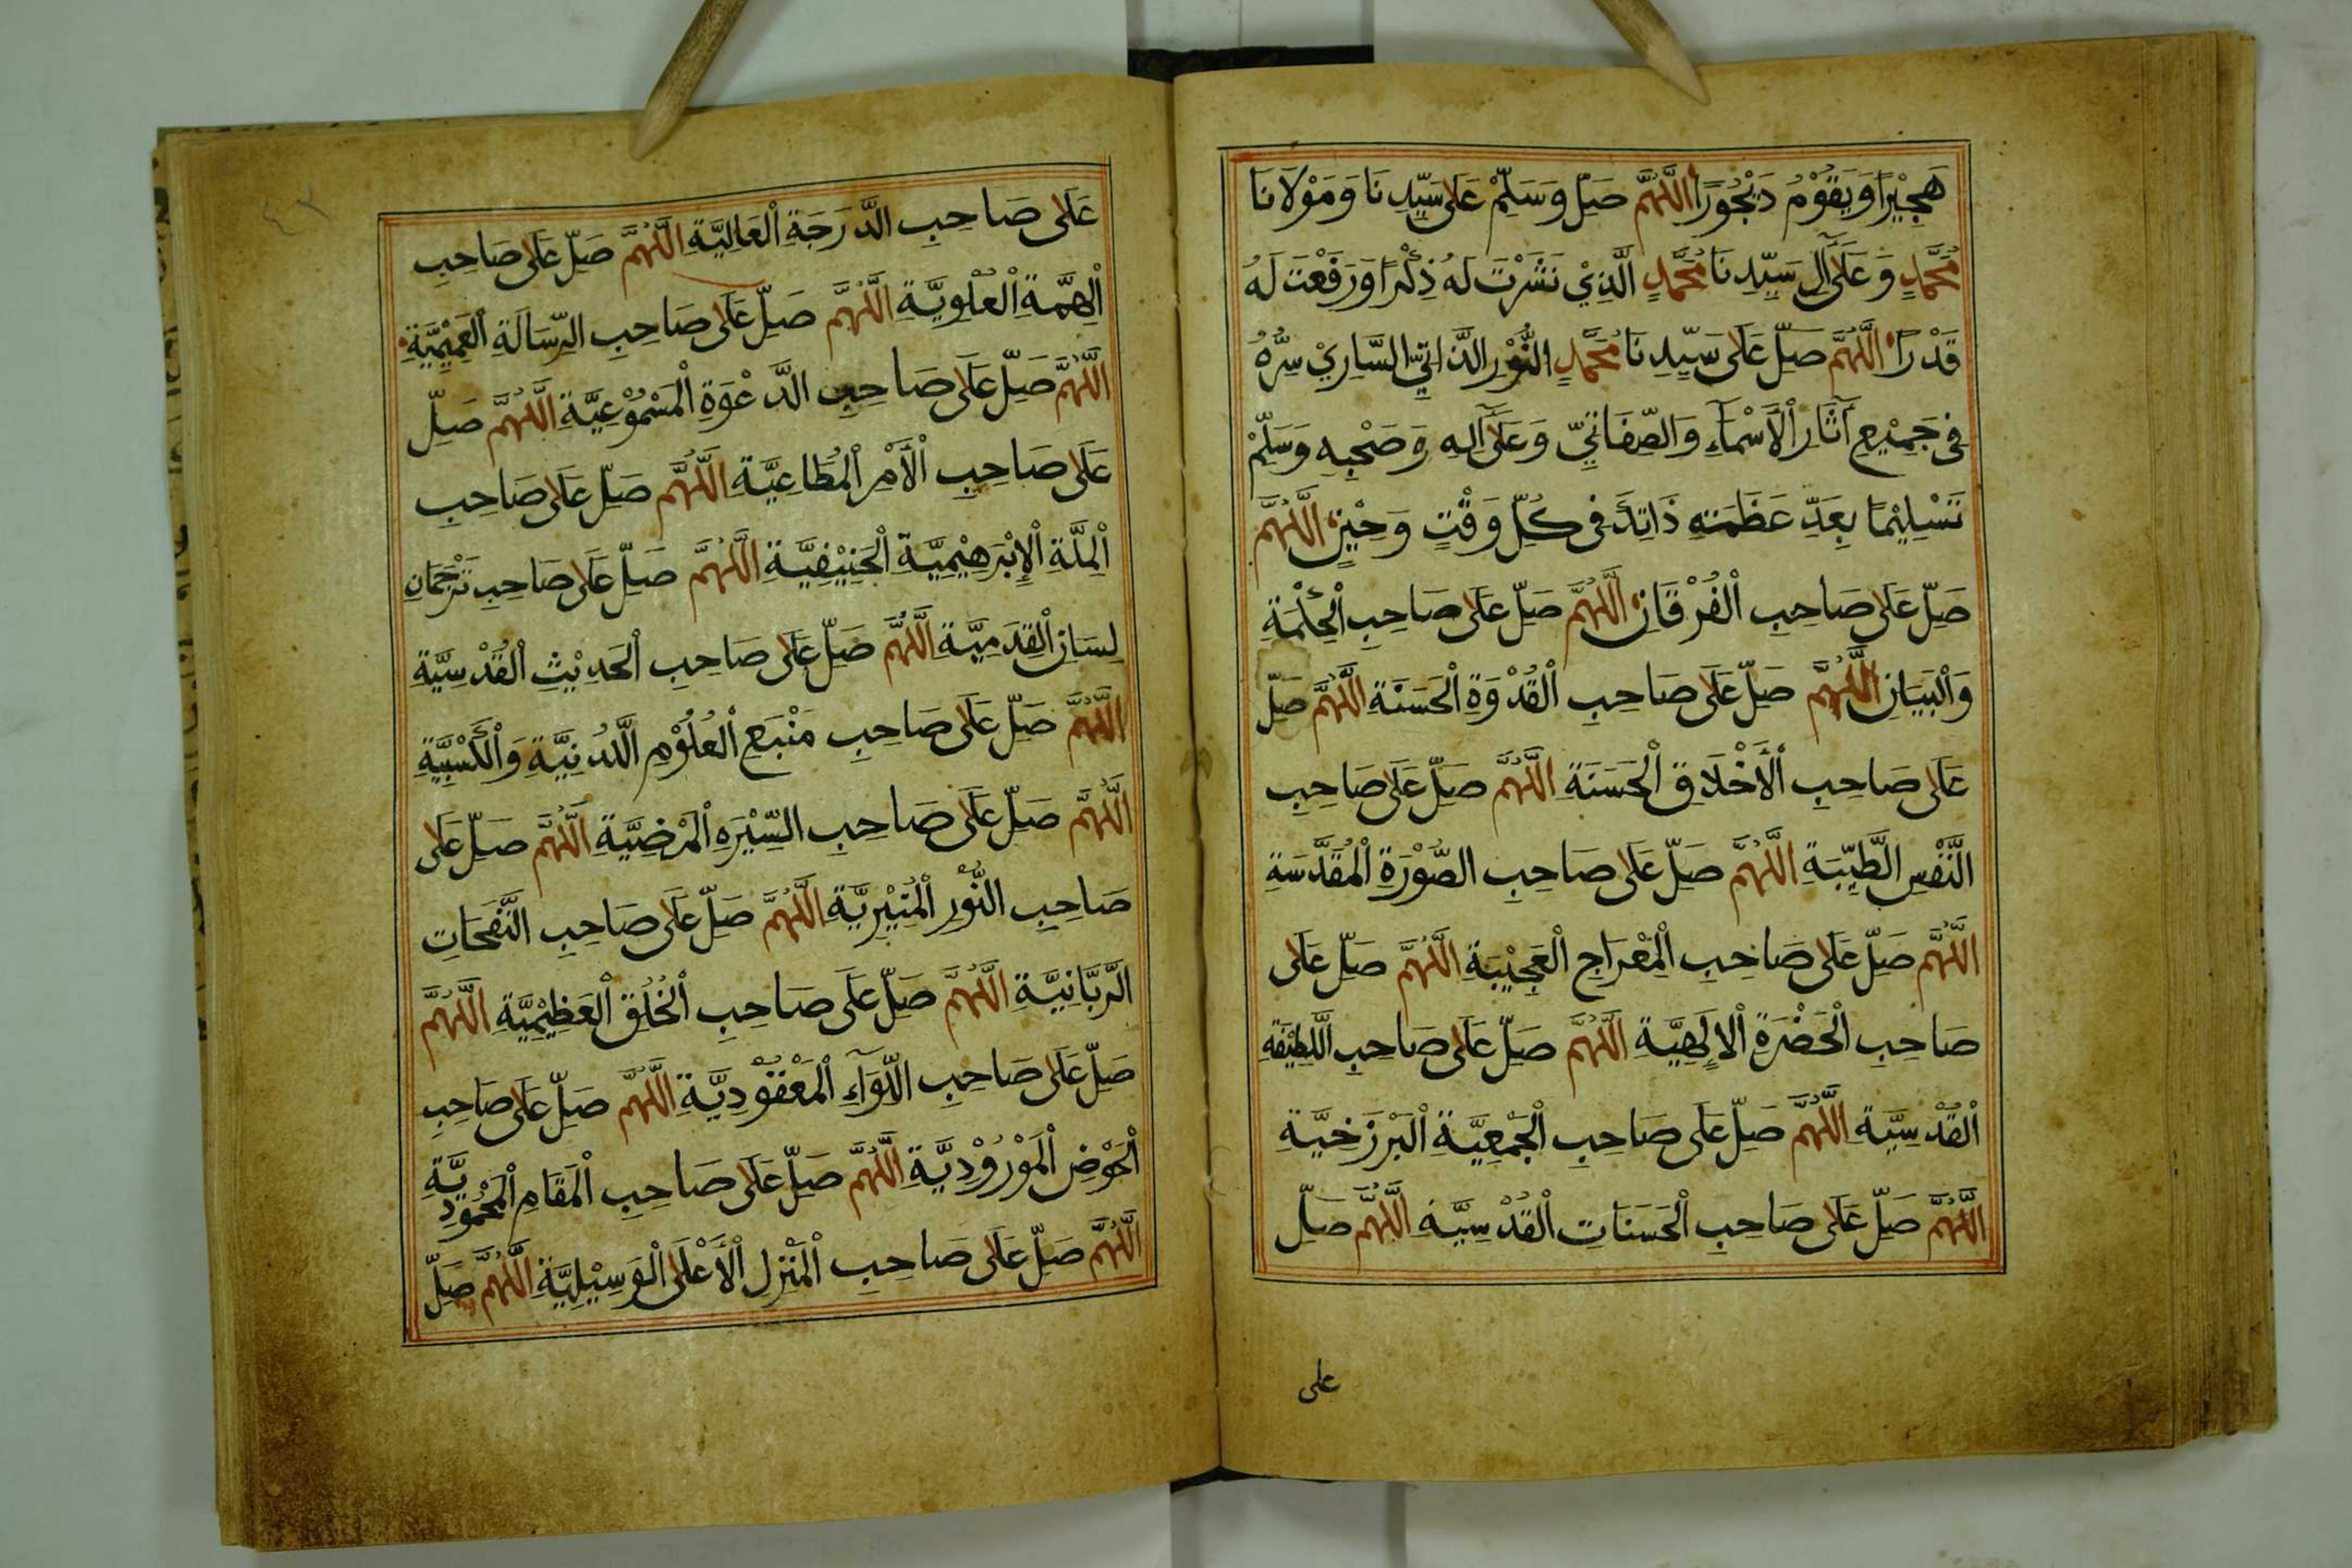 هَجِيْرًا وَيَقُوْمُ دَيْجُوْرًا اَللّٰهُمَّ صَلِّ وَسَلِّمْ عَلٰى سَيِّدِنَا وَمَوْلَانَا
مُحَمَّدٍ وَعَلٰى آلِ سَيِّدِنَا مُحَمَّدٍ الَّذِيْ نَشَرْتَ لَهُ ذِكْرًا وَرَفَعْتَ لَهُ
قَدْرًا اَللّٰهُمَّ صَلِّ عَلٰى سَيِّدِنَا مُحَمَّدٍ النُّوْرِ الذَّاتِيِّ السَّارِيْ سِرُّهُ
فِى جَمِيْعِ آثَارِ الْأَسْمَآءِ وَالصِّفَاتِيِّ وَعَلٰى آلِهِ وَصَحْبِهِ وَسَلِّمْ
تَسْلِيْمًا بِعَدِّ عَظَمَتِهِ ذَاتِهِ فِى كُلِّ وَقْتٍ وَحِيْنٍ اَللّٰهُمَّ
صَلِّ عَلٰى صَاحِبِ الْفُرْقَانِ اَللّٰهُمَّ صَلِّ عَلٰى صَاحِبِ الْحِكْمَةِ
وَالْبَيَانِ اَللّٰهُمَّ صَلِّ عَلٰى صَاحِبِ الْقُدْوَةِ الْحَسَنَةِ اَللّٰهُمَّ صَلِّ
عَلٰى صَاحِبِ الْأَخْلَاقِ الْحَسَنَةِ اَللّٰهُمَّ صَلِّ عَلٰى صَاحِبِ
النَّفْسِ الطَّيِّبَةِ اَللّٰهُمَّ صَلِّ عَلٰى صَاحِبِ الصُّوْرَةِ الْمُقَدَّسَةِ
اَللّٰهُمَّ صَلِّ عَلٰى صَاحِبِ الْمِعْرَاجِ الْعَجِيْبَةِ اَللّٰهُمَّ صَلِّ عَلٰى
صَاحِبِ الْحَضْرَةِ الْإِلٰهِيَّةِ اَللّٰهُمَّ صَلِّ عَلٰى صَاحِبِ اللَّطِيْفَةِ
الْقُدْسِيَّةِ اَللّٰهُمَّ صَلِّ عَلٰى صَاحِبِ الْجَمْعِيَّةِ الْبَرْزَخِيَّةِ
اَللّٰهُمَّ صَلِّ عَلٰى صَاحِبِ الْحَسَنَاتِ الْقُدْسِيَّةِ اَللّٰهُمَّ صَلِّ
على
٤٢
عَلٰى صَاحِبِ الدَّرَجَةِ الْعَالِيَّةِ اَللّٰهُمَّ صَلِّ عَلٰى صَاحِبِ
الْهِمَّةِ الْعُلْوِيَّةِ اَللّٰهُمَّ صَلِّ عَلٰى صَاحِبِ الرِّسَالَةِ الْعَمِيْمِيَّةِ
اَللّٰهُمَّ صَلِّ عَلٰى صَاحِبِ الدَّعْوَةِ الْمَسْمُوْعِيَّةِ اَللّٰهُمَّ صَلِّ
عَلٰى صَاحِبِ الْأَمْرِ الْمُطَاعِيَّةِ اَللّٰهُمَّ صَلِّ عَلٰى صَاحِبِ
الْمِلَّةِ الْإِبْرَهِيْمِيَّةِ الْحَنِيْفِيَّةِ اَللّٰهُمَّ صَلِّ عَلٰى صَاحِبِ تَرْجُمَانِ
لِسَانِ الْقِدَمِيَّةِ اَللّٰهُمَّ صَلِّ عَلٰى صَاحِبِ الْحَدِيْثِ الْقُدْسِيَّةِ
اَللّٰهُمَّ صَلِّ عَلٰى صَاحِبِ مَنْبَعِ الْعُلُوْمِ اللَّدُنِيَّةِ وَالْكَسْبِيَّةِ
اَللّٰهُمَّ صَلِّ عَلٰى صَاحِبِ السِّيْرَةِ الْمَرْضِيَّةِ اَللّٰهُمَّ صَلِّ عَلٰى
صَاحِبِ النُّوْرِ الْمُنِيْرِيَّةِ اَللّٰهُمَّ صَلِّ عَلٰى صَاحِبِ النَّفَحَاتِ
الرَّبَّانِيَّةِ اَللّٰهُمَّ صَلِّ عَلٰى صَاحِبِ الْخُلُقِ الْعَظِيْمِيَّةِ اَللّٰهُمَّ
صَلِّ عَلٰى صَاحِبِ اللِّوَآءِ الْمَعْقُوْدِيَّةِ اَللّٰهُمَّ صَلِّ عَلٰى صَاحِبِ
الْحَوْضِ الْمَوْرُوْدِيَّةِ اَللّٰهُمَّ صَلِّ عَلٰى صَاحِبِ الْمَقَامِ الْمَحْمُوْدِيَّةِ
اَللّٰهُمَّ صَلِّ عَلٰى صَاحِبِ الْمَنْزِلِ الْأَعْلَى الْوَسِيْلِيَّةِ اَللّٰهُمَّ صَلِّ